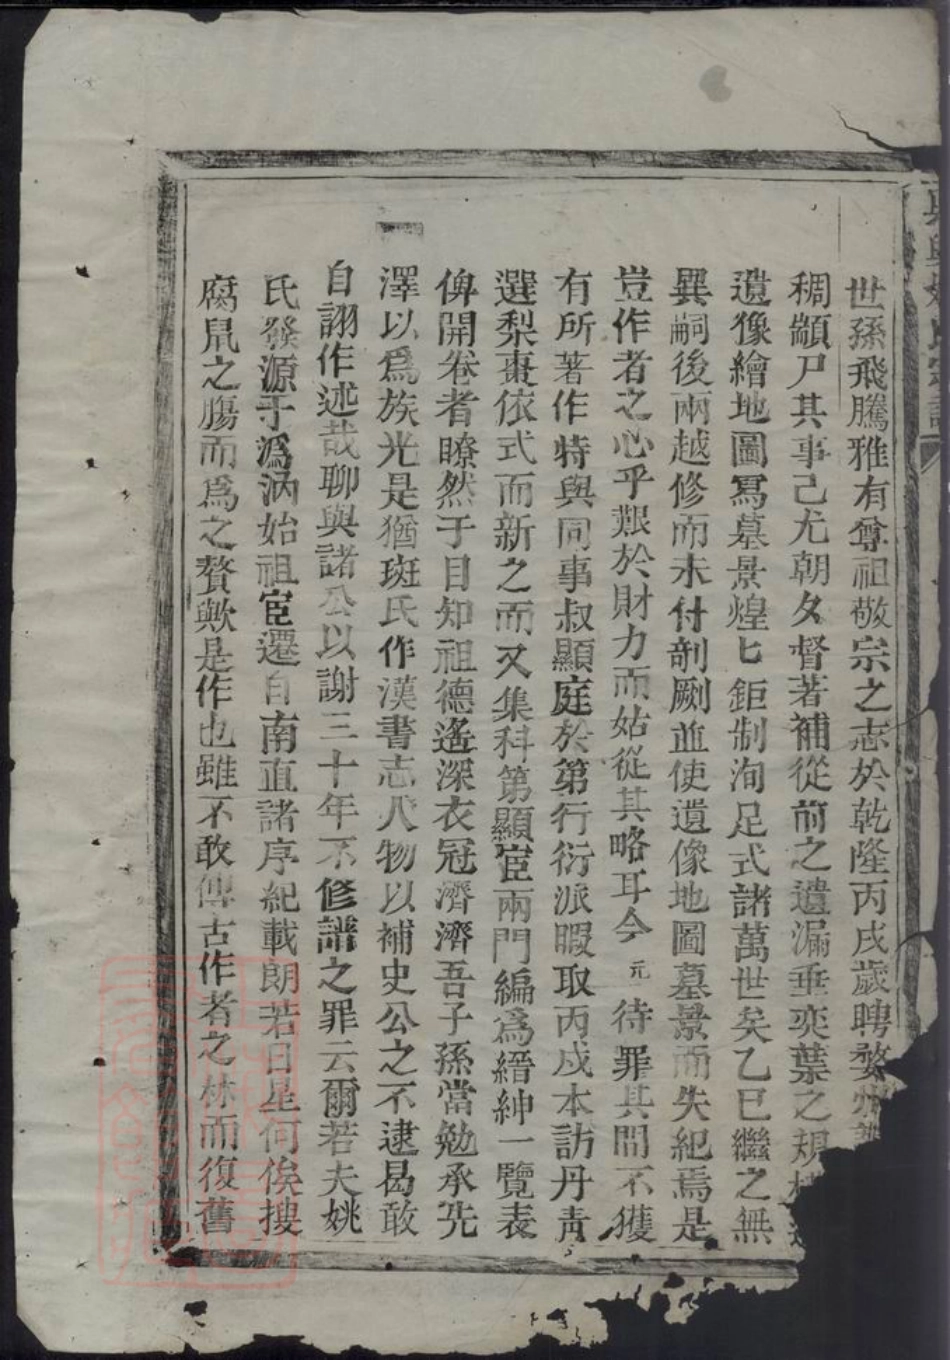 世孫飛騰雅有尊祖敬宗之志於乾隆丙戌歲聘婺州
稠顓尸其事己尤朝夂督著補從前之遺漏垂奕葉之規
遺像繪地圖冩墓景煌匕鉅制洵足式諸萬世矣乙巳繼之無
異嗣後兩越修而未付剞劂並使遺像地圖墓景而失紀焉是
豈作者之心乎艱於財力而姑從其略耳今元待罪其間不獲
有所著作特與同事叔顯庭於第行衍派暇取丙戍本訪丹靑
選梨棗依式而新之而又集科第顯宦兩門編爲縉紳一覽表
俾開卷者瞭然于目知祖德遙深衣冠濟濟吾子孫當勉承先
澤以爲族光是猶斑氏作漢書志人物以補史公之不逮曷敢
自詡作述哉聊與諸公以謝三十年不修譜之罪云爾若夫姚
氏發源于溈汭始祖宦遷自南直諸序紀載朗若日星何俟搜
腐鼠之膓而爲之贅歟是作也雖不敢傳古作者之林而復舊